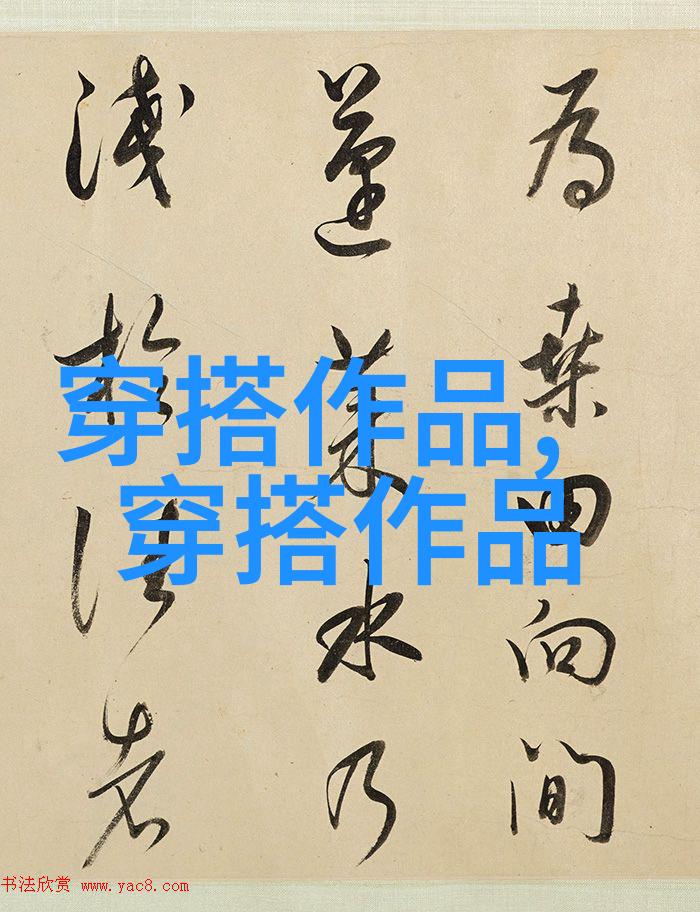 為桑田向間
蓬萊水乃
淺於往者
穿搭作品,
穿搭作品
书法欣赏 www.yac8.com